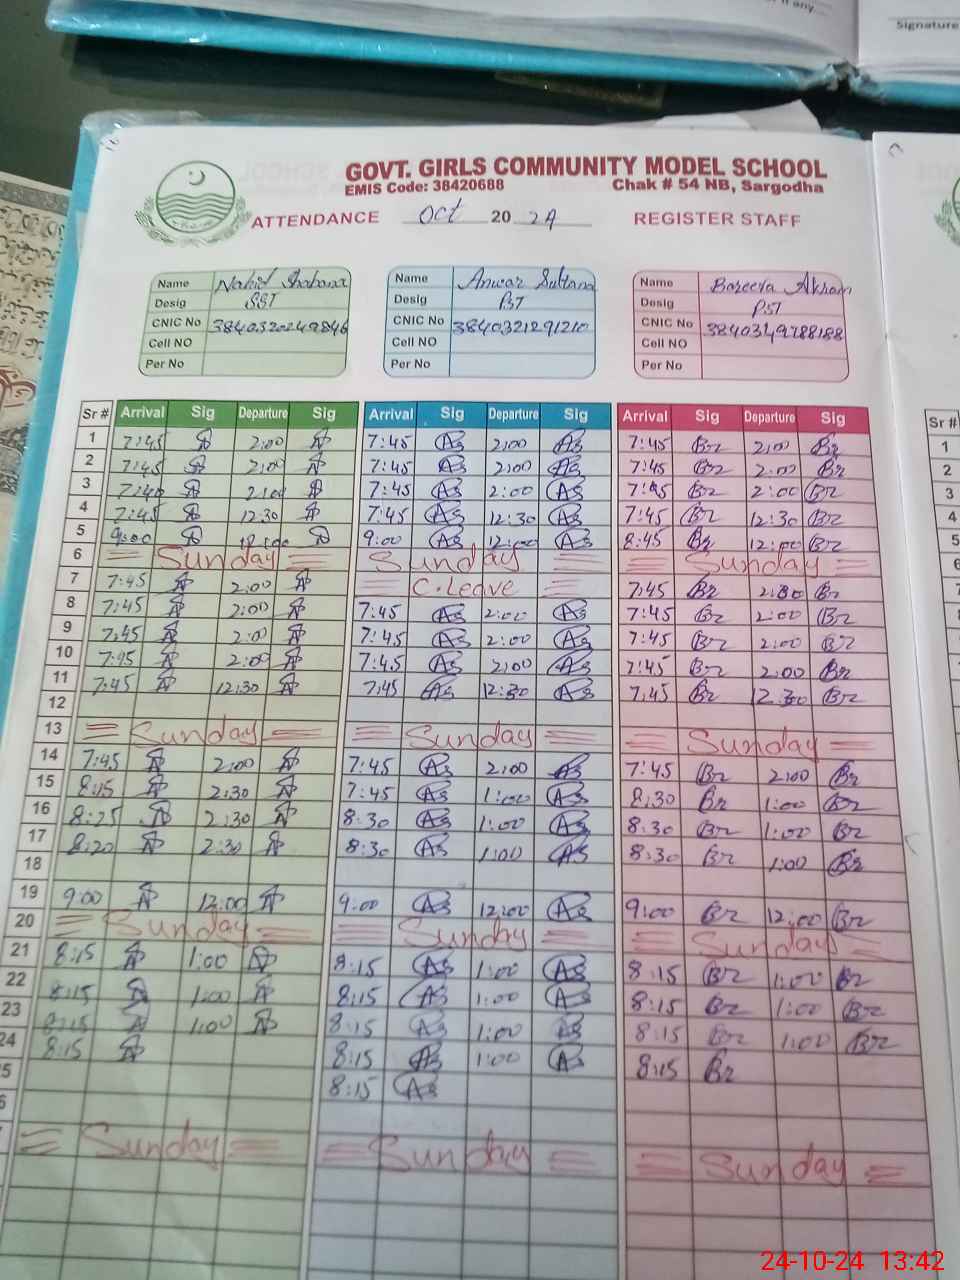 if any....
Signature
GOVT. GIRLS COMMUNITY MODEL SCHOOL
EMIS Code: 38420688 Chak # 54 NB, Sargodha
ATTENDANCE Oct 20 24 REGISTER STAFF
Name Nahid Shabana Name Anwar Sultana Name Bareera Akram
Desig SST Desig PST Desig PST
CNIC No CNIC No 3840321291210 CNIC No 3840349788188
Cell NO Cell NO Cell NO
Per No Per No Per No
Sr # Arrival Sig Departure Sig Arrival Sig Departure Sig Arrival Sig Departure Sig Sr #
1 7:45 2:00 7:45 As 2:00 As 7:45 Br 2:00 Br 1
2 7:45 2:00 7:45 As 2:00 As 7:45 Br 2:00 Br 2
3 7:40 2:00 7:45 As 2:00 As 7:45 Br 2:00 Br 3
4 7:45 12:30 7:45 As 12:30 As 7:45 Br 12:30 Br 4
5 9:00 12:00 9:00 As 12:00 As 8:45 Br 12:00 Br 5
6 = Sunday = = Sunday = = Sunday = 6
7 7:45 2:00 = C.Leave = 7:45 Br Br 7
8 7:45 2:00 7:45 As 2:00 As 7:45 Br 2:00 Br 8
9 7:45 2:00 7:45 As 2:00 As 7:45 Br 2:00 Br 9
10 7:45 2:00 7:45 As 2:00 As 7:45 Br 2:00 Br
11 7:45 12:30 7:45 As 12:30 As 7:45 Br 12:30 Br
12
13 = Sunday = = Sunday = = Sunday =
14 7:45 2:00 7:45 As 2:00 As 7:45 Br 2:00 Br
15 8:15 2:30 7:45 As 1:00 As 8:30 Br 1:00 Br
16 8:25 2:30 8:30 As 1:00 As 8:30 Br 1:00 Br
17 8:20 2:30 8:30 As 1:00 As 8:30 Br 1:00 Br
18
19 9:00 12:00 9:00 As 12:00 As 9:00 Br 12:00 Br
20 = Sunday = = Sunday = = Sunday =
21 8:15 1:00 8:15 As 1:00 As 8:15 Br 1:00 Br
22 8:15 1:00 8:15 As 1:00 As 8:15 Br 1:00 Br
23 8:15 1:00 8:15 As 1:00 As 8:15 Br 1:00 Br
24 8:15 8:15 As 1:00 As 8:15 Br
8:15 As
= Sunday = = Sunday = = Sunday =
24-10-24 13:42